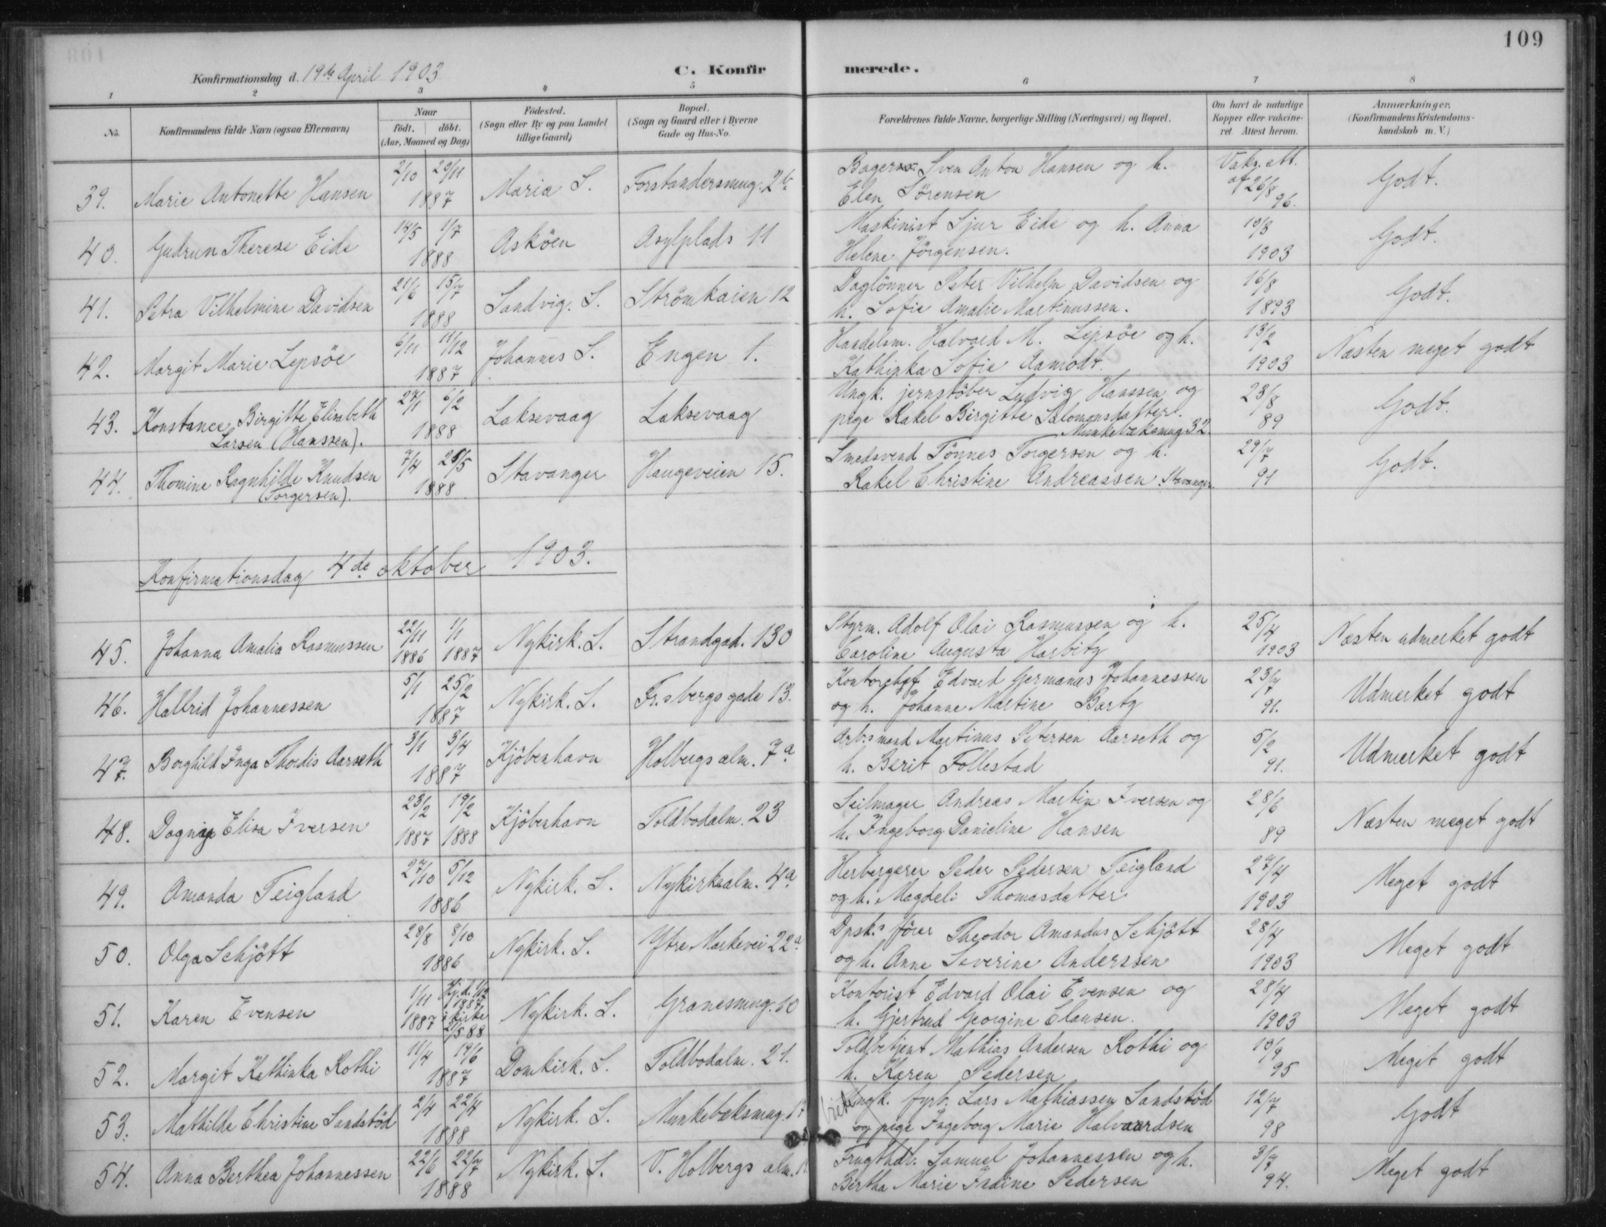 109
Konfirmationsdag d. 19de April 1903
C. Konfir
merede.
1 2 3 4 5 6 7 8
No.
Konfirmandens fulde Navn (ogsaa Efternavn)
Naar
født. døbt.
(Aar, Maaned og Dag)
Fødested.
(Sogn eller By og paa Landet
tillige Gaard)
Bopæl.
(Sogn og Gaard eller i Byerne
Gade og Hus-No.
Forældrenes fulde Navne, borgerlige Stilling (Næringsvei) og Bopæl.
Om havt de naturlige
Kopper eller vakcine-
ret. Attest herom.
Anmærkninger.
(Konfirmandens Kristendoms-
kundskab m. V.)
39. Marie Antonette Hansen 2/10 29/11 1887 Mariæ S. Forstandersmug. 2b
Bagersv. Sven Anton Hansen og h.
Elen Sørensen
Vakc. att. af 26/8 96. Godt.
40. Gudrun Therese Eide 14/5 1/7 1888 Askøen Asylplads 11
Maskinist Sjur Eide og h. Anna
Helene Jörgensen.
10/8 1903 Godt.
41. Petra Vilhelmine Davidsen 21/6 15/7 1888 Sandvig. S. Strömkaien 12
Daglönner Peter Vilhelm Davidsen og
h. Sofie Amalie Martinussen.
16/8 1893 Godt.
42. Margit Marie Lepsöe 6/11 11/12 1887 Johannes S. Engen 1.
Handelsm. Halvard M. Lepsöe og h.
Kathinka Sofie Aamodt.
13/2 1903 Næsten meget godt
43. Konstance Birgitte Elisabeth
Larsen (Hanssen). 27/1 6/2 1888 Laksevaag Laksevaag
Ungk. jernstöber Ludvig Hanssen og
pige Rakel Birgitte Salomonsdatter.
Munkebæksmug 32.
28/8 89 Godt.
44. Thomine Ragnhilde Knudsen
(Torgersen). 7/4 21/5 1888 Stavanger Haugeveien 15.
Smedsvend Tönnes Torgersen og h.
Rakel Christine Andreassen. Stavanger
29/7 91 Godt.
Konfirmationsdag 4de oktober 1903.
45. Johanna Amalia Rasmussen 22/11 1886 1/1 1887 Nykirk. S. Strandgad. 130
Styrm. Adolf Olai Rasmussen og h.
Caroline Augusta Harbitz
25/4 1903 Næsten udmerket godt
46. Halbrid Johannessen 5/1 25/2 1887 Nykirk. S. Fr.sbergs gade 13.
Kontorchef Edvard Germanus Johannessen
og h. Johanne Martine Bartz
23/7 91. Udmerket godt
47. Borghild Inga Thordis Aarseth 3/1 3/4 1887 Kjöbenhavn Holbergs alm. 7a
Arb.smand Martinus Petersen Aarseth og
h. Berit Follestad
5/2 91. Udmerket godt
48. Dagny Elisa Iversen 23/2 1887 19/2 1888 Kjöbenhavn Toldbodalm. 23
Seilmager Andreas Martin Iversen og
h. Ingeborg Danieline Hansen
28/6 89 Næsten meget godt
49. Amanda Teigland 27/10 5/12 1886 Nykirk. S. Nykirkealm. 4a
Herbergerer Peder Pedersen Teigland
og h. Magdeli Thomasdatter
27/4 1903 Meget godt
50. Olga Schjött 28/8 8/10 1886 Nykirk. S. Ytre Markevei 22a
Dpsk.s förer Theodor Amandus Schjött
og h. Anne Severine Anderssen
28/4 1903 Meget godt
51. Karen Evensen 1/11 1887 Hj.d. 1/12 1887, i kirke 2/5 88 Nykirk. S. Granesmug. 10
Kontorist Edvard Olai Evensen og
h. Gjertrud Georgine Clausen.
28/4 1903 Meget godt
52. Margit Kathinka Rothi 11/4 19/6 1887 Domkirk. S. Toldbodalm. 21.
Toldbetjent Mathias Andersen Rothi og
h. Karen Pedersen
10/9 95 Meget godt
53. Mathilde Christine Sandstöd 2/4 22/4 1888 Nykirk. S. Munkebæksmug. 17
Ungk. fyrb. Lars Mathiassen Sandstöd
og pige Ingeborg Marie Halvaardsen
12/7 98 Godt
54. Anna Berthea Johannessen 22/6 22/7 1888 Nykirk. S. V. Holbergs alm.
Frugthdl. Samuel Johannessen og h.
Bertha Marie Fredine Pedersen
3/7 94. Meget godt